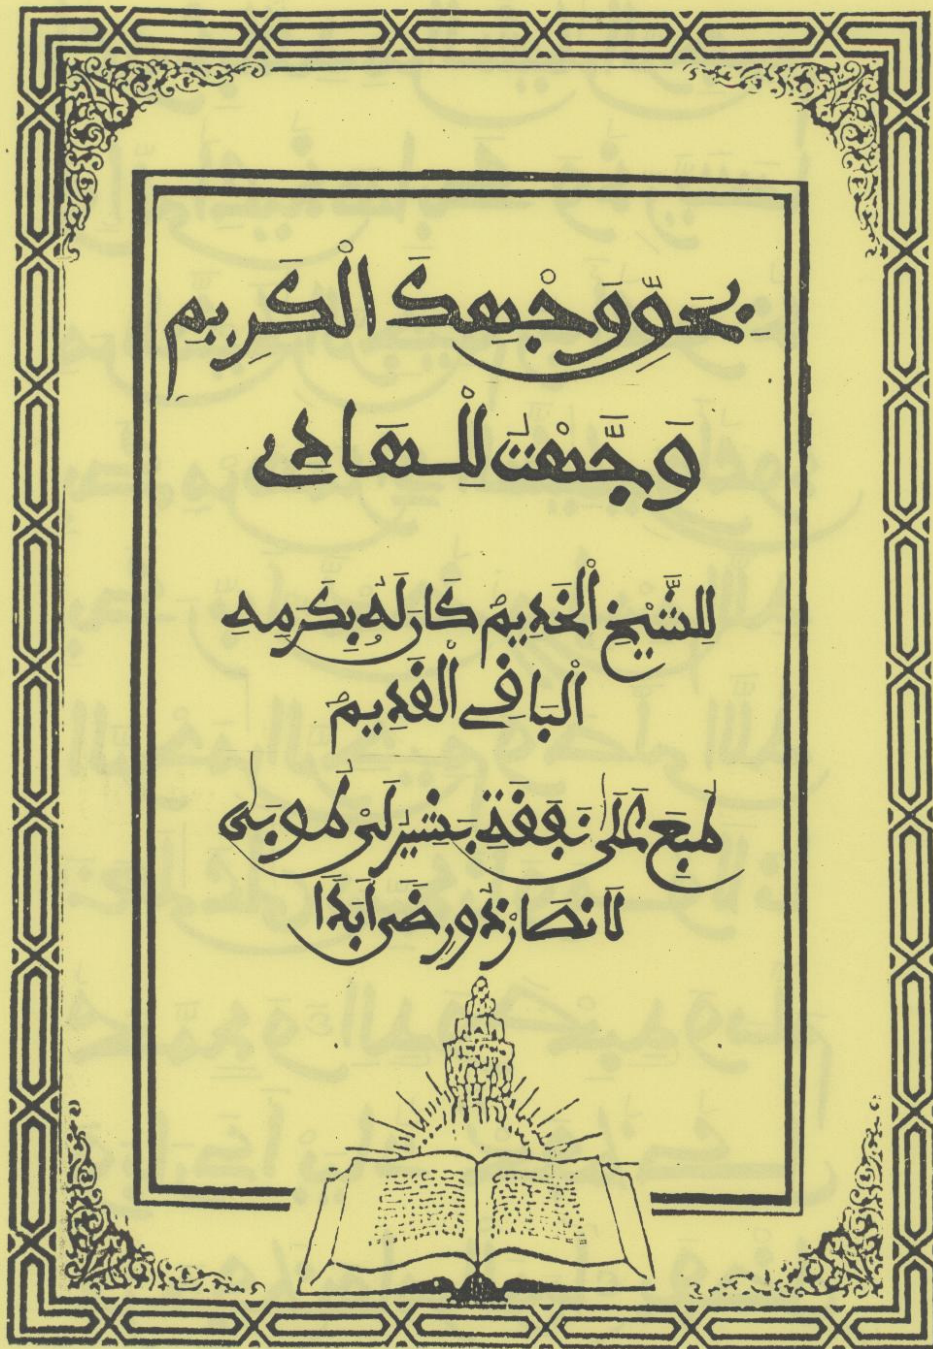 بِحَقِّ وَجْهِكَ الْكَرِيمِ
وَجَّهْتُ لِلْهَادِي
لِلشَّيْخِ الْخَدِيمِ كَانَ لَهُ بِكَرَمِهِ
الْبَاقِي الْقَدِيمُ
طُبِعَ عَلَى نَفَقَةِ بَشِير لُى طُوبَى
لَانْصَارْ دُورِضَى ابَدًا